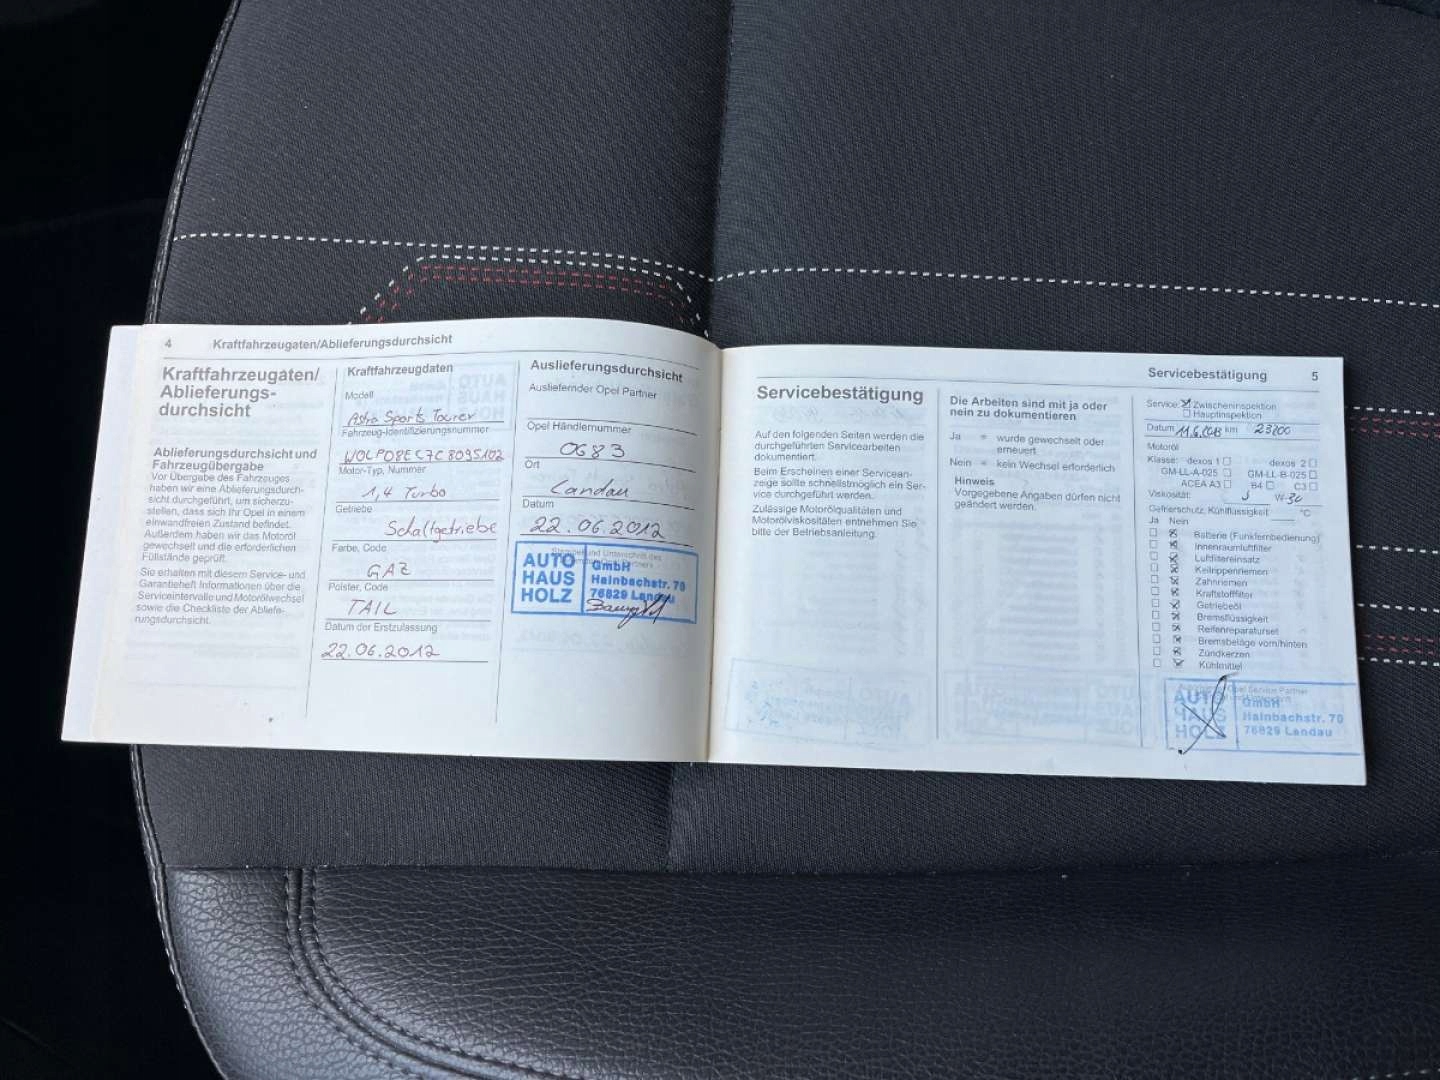 4 Kraftfahrzeugaten/Ablieferungsdurchsicht
Kraftfahrzeugaten/
Ablieferungs-
durchsicht
Ablieferungsdurchsicht und
Fahrzeugübergabe
Vor Übergabe des Fahrzeuges
haben wir eine Ablieferungsdurch-
sicht durchgeführt, um sicherzu-
stellen, dass sich Ihr Opel in einem
einwandfreien Zustand befindet.
Außerdem haben wir das Motoröl
gewechselt und die erforderlichen
Füllstände geprüft.
Sie erhalten mit diesem Service- und
Garantieheft Informationen über die
Serviceintervalle und Motorölwechsel
sowie die Checkliste der Abliefe-
rungsdurchsicht.
Kraftfahrzeugdaten
Modell
Astra Sports Tourer
Fahrzeug-Identifizierungsnummer
W0LPD8EC7C8095102
Motor-Typ, Nummer
1,4 Turbo
Getriebe
Schaltgetriebe
Farbe, Code
GAZ
Polster, Code
TAIL
Datum der Erstzulassung
22.06.2012
Auslieferungsdurchsicht
Ausliefernder Opel Partner
Opel Händlernummer
0683
Ort
Landau
Datum
22.06.2012
Stempel und Unterschrift des
AUTO
HAUS
HOLZ
GmbH
Hainbachstr. 70
76829 Landau
Servicebestätigung 5
Servicebestätigung
Auf den folgenden Seiten werden die
durchgeführten Servicearbeiten
dokumentiert.
Beim Erscheinen einer Servicean-
zeige sollte schnellstmöglich ein Ser-
vice durchgeführt werden.
Zulässige Motorölqualitäten und
Motorölviskositäten entnehmen Sie
bitte der Betriebsanleitung.
Die Arbeiten sind mit ja oder
nein zu dokumentieren
Ja = wurde gewechselt oder
erneuert
Nein = kein Wechsel erforderlich
Hinweis
Vorgegebene Angaben dürfen nicht
geändert werden.
Service: Zwischeninspektion
Hauptinspektion
Datum 11.6.2013 km 23200
Motoröl
Klasse: dexos 1 dexos 2
GM-LL-A-025 GM-LL-B-025
ACEA A3 B4 C3
Viskosität: 5 W-30
Gefrierschutz, Kühlflüssigkeit °C
Ja Nein
Batterie (Funkfernbedienung)
Innenraumluftfilter
Luftfiltereinsatz
Keilrippenriemen
Zahnriemen
Kraftstofffilter
Getriebeöl
Bremsflüssigkeit
Reifenreparaturset
Bremsbeläge vorn/hinten
Zündkerzen
Kühlmittel
Opel Service Partner
AUTO
HAUS
HOLZ
GmbH
Hainbachstr. 70
76829 Landau